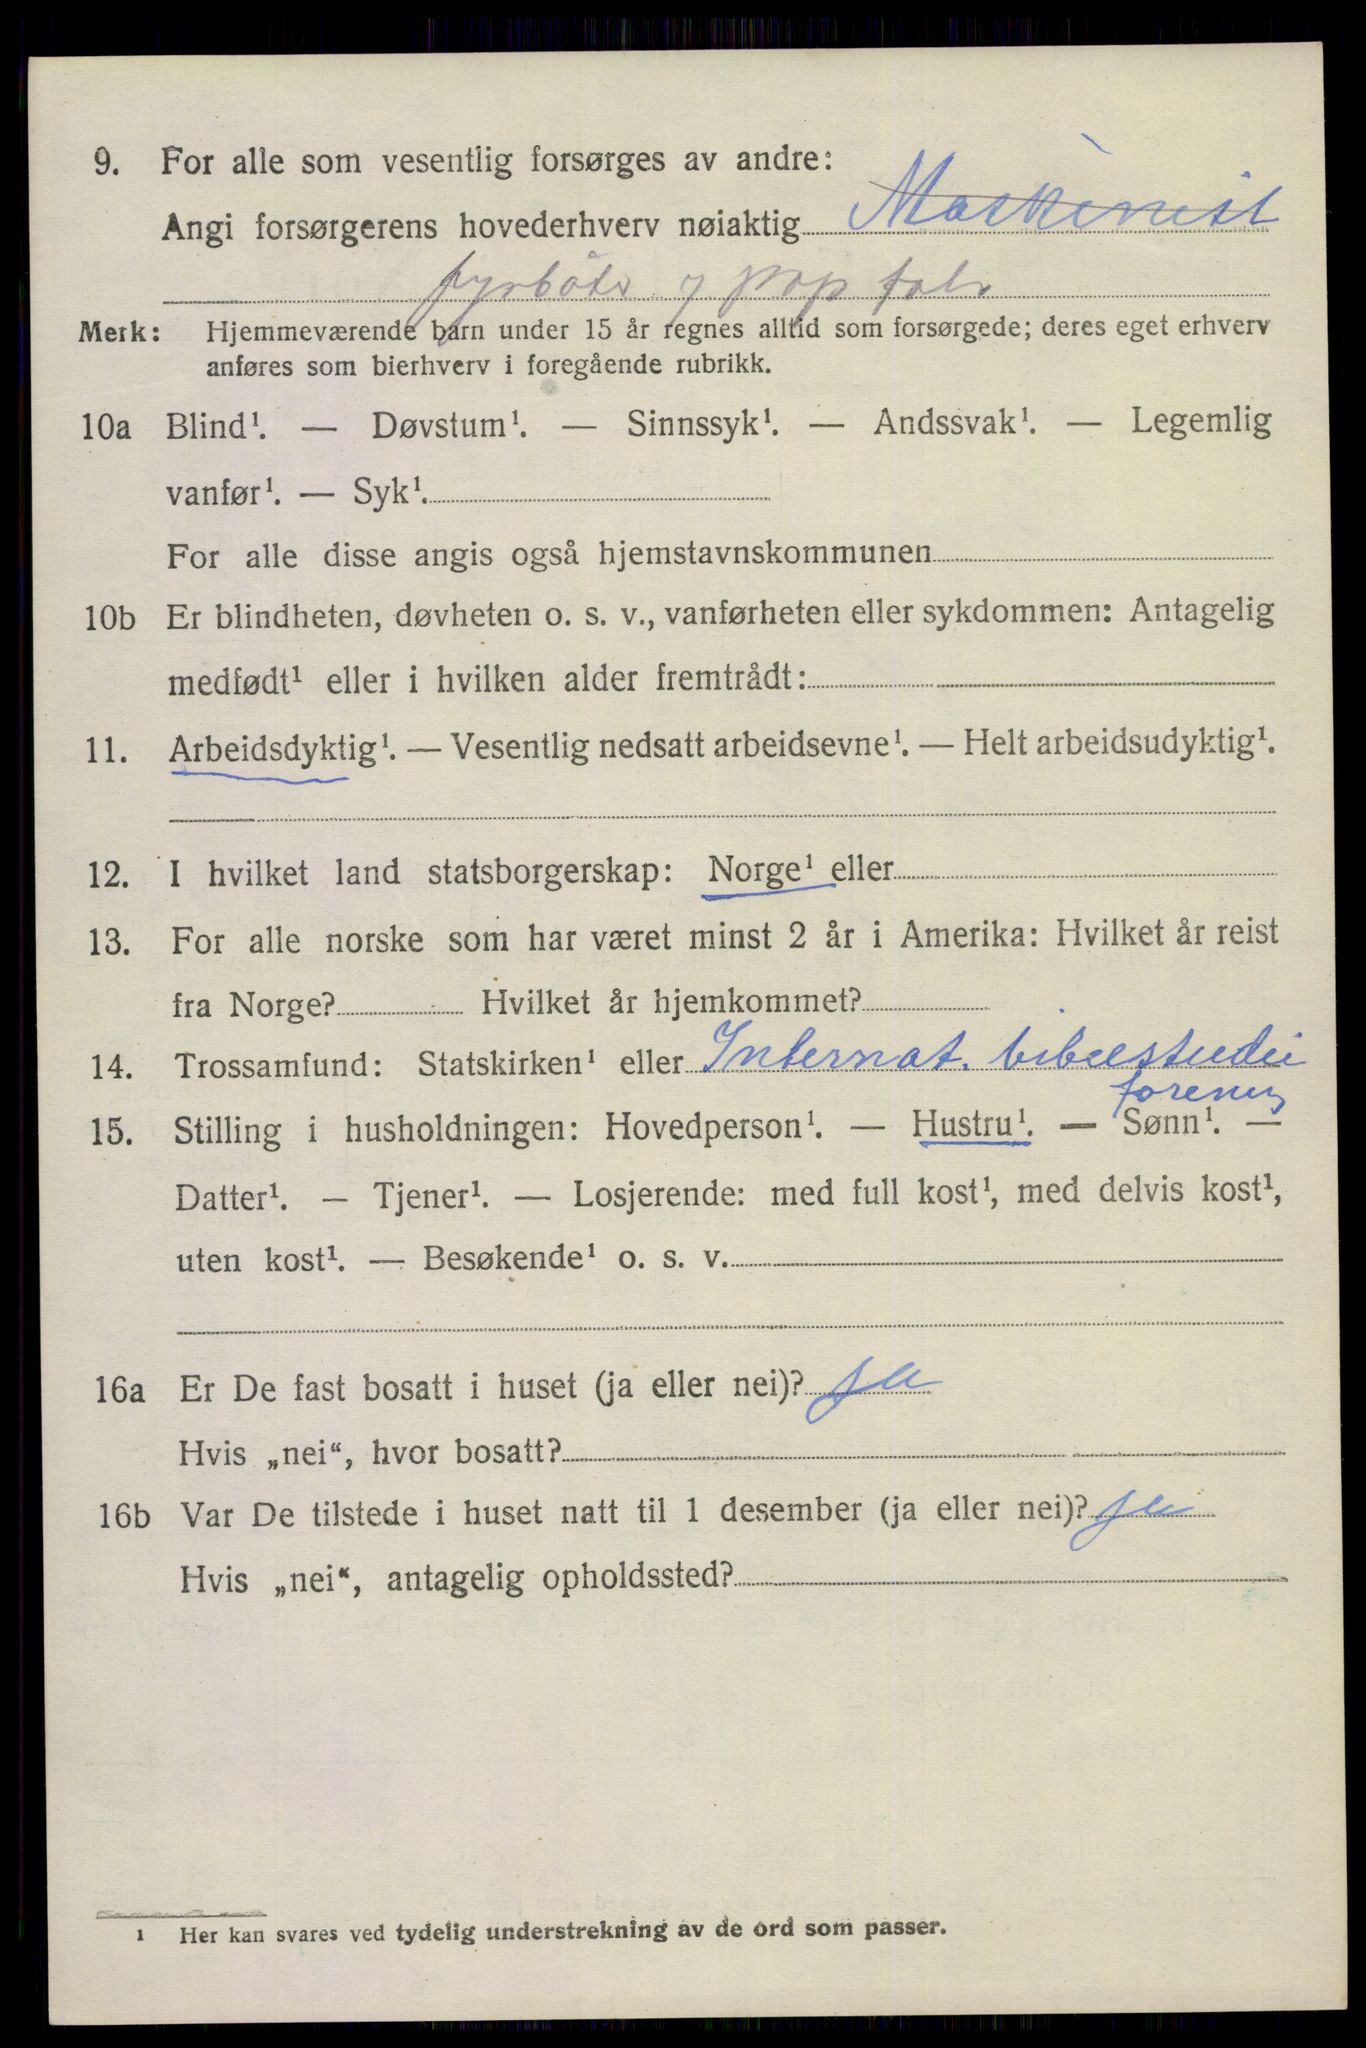 9. For alle som vesentlig forsørges av andre:
Angi forsørgerens hovederhverv nøiaktig Maskinist
fyrböter pap fabr
Merk: Hjemmeværende barn under 15 år regnes alltid som forsørgede; deres eget erhverv
anføres som bierhverv i foregående rubrikk.
10a Blind¹. — Døvstum¹. — Sinnssyk¹. — Andssvak¹. — Legemlig
vanfør¹. — Syk¹.
For alle disse angis også hjemstavnskommunen
10b Er blindheten, døvheten o. s. v., vanførheten eller sykdommen: Antagelig
medfødt¹ eller i hvilken alder fremtrådt:
11. Arbeidsdyktig¹. — Vesentlig nedsatt arbeidsevne¹. — Helt arbeidsudyktig¹.
12. I hvilket land statsborgerskap: Norge¹ eller
13. For alle norske som har været minst 2 år i Amerika: Hvilket år reist
fra Norge? Hvilket år hjemkommet?
14. Trossamfund: Statskirken¹ eller Internat. bibelstudie
forening
15. Stilling i husholdningen: Hovedperson¹. — Hustru¹. — Sønn¹. —
Datter¹. — Tjener¹. — Losjerende: med full kost¹, med delvis kost¹,
uten kost¹. — Besøkende¹ o. s. v.
16a Er De fast bosatt i huset (ja eller nei)? ja
Hvis „nei“, hvor bosatt?
16b Var De tilstede i huset natt til 1 desember (ja eller nei)? ja
Hvis „nei“, antagelig opholdssted?
1 Her kan svares ved tydelig understrekning av de ord som passer.